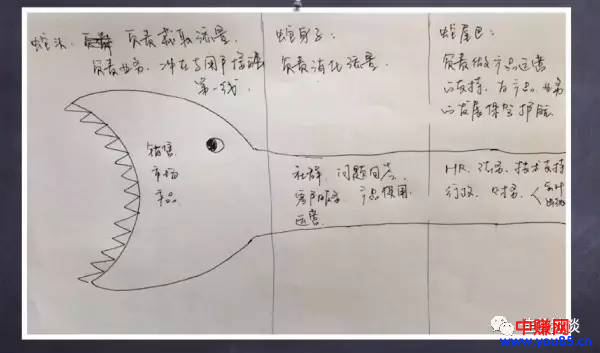 蛇头：负责获取流量，
负责业务，冲在与用户接触
第一线。
蛇身子：
负责消化流量。
蛇尾巴：
负责做产品运营
的支持，为产品、业务
的发展保驾护航
销售
市场
产品
社群、问题回答
客户服务、产品使用
运营
HR、法务、技术支持
行政、财务、
会计
出纳
谈
中赚网
www.you85.cn